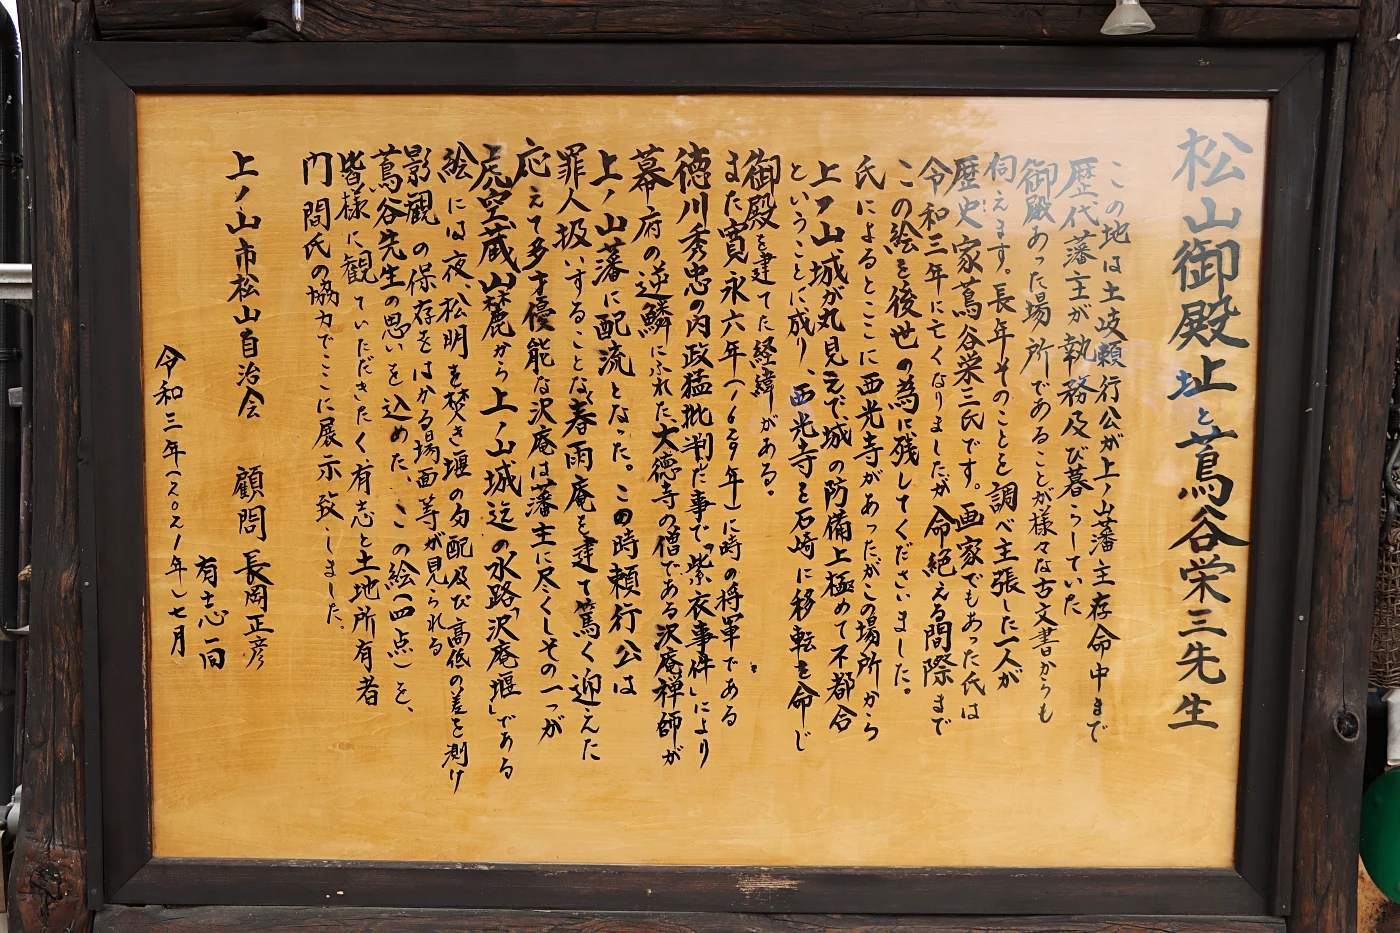 松山御殿址と蔦谷栄三先生
この地は土岐頼行公が上ノ山藩主存命中まで
歴代藩主が執務及び暮らしていた
御殿あった場所であることが様々な古文書からも
伺えます。長年そのことを調べ主張した一人が
歴史家蔦谷栄三氏です。画家でもあった氏は
令和三年に亡くなりましたが命絶える間際まで
この絵を後世の為に残してくださいました。
氏によるとここに西光寺があったがこの場所から
上ノ山城が丸見えで城の防備上極めて不都合
ということに成り、西光寺を石崎に移転を命じ
御殿を建てた経緯がある。
また寛永六年(1629年)に時の将軍である
徳川秀忠の内政猛批判だ事で「紫衣事件」により
幕府の逆鱗にふれた大徳寺の僧である沢庵禅師が
上ノ山藩に配流となった。この時頼行公は
罪人扱いすることなく春雨庵を建て篤く迎えた
応えて多才優能な沢庵は藩主に尽くしその一つが
虎空蔵山麓から上ノ山城迄の水路「沢庵堰」である
絵には夜、松明を焚き堰の勾配及び高低の差を測り
影観の保存をはかる場面等が見られる
蔦谷先生の思いを込めた、この絵(四点)を、
皆様に観ていただきたく有志と土地所有者
門間氏の協力でここに展示致しました。
上ノ山市松山自治会 顧問 長岡正彦
有志一同
令和三年(2021年)七月